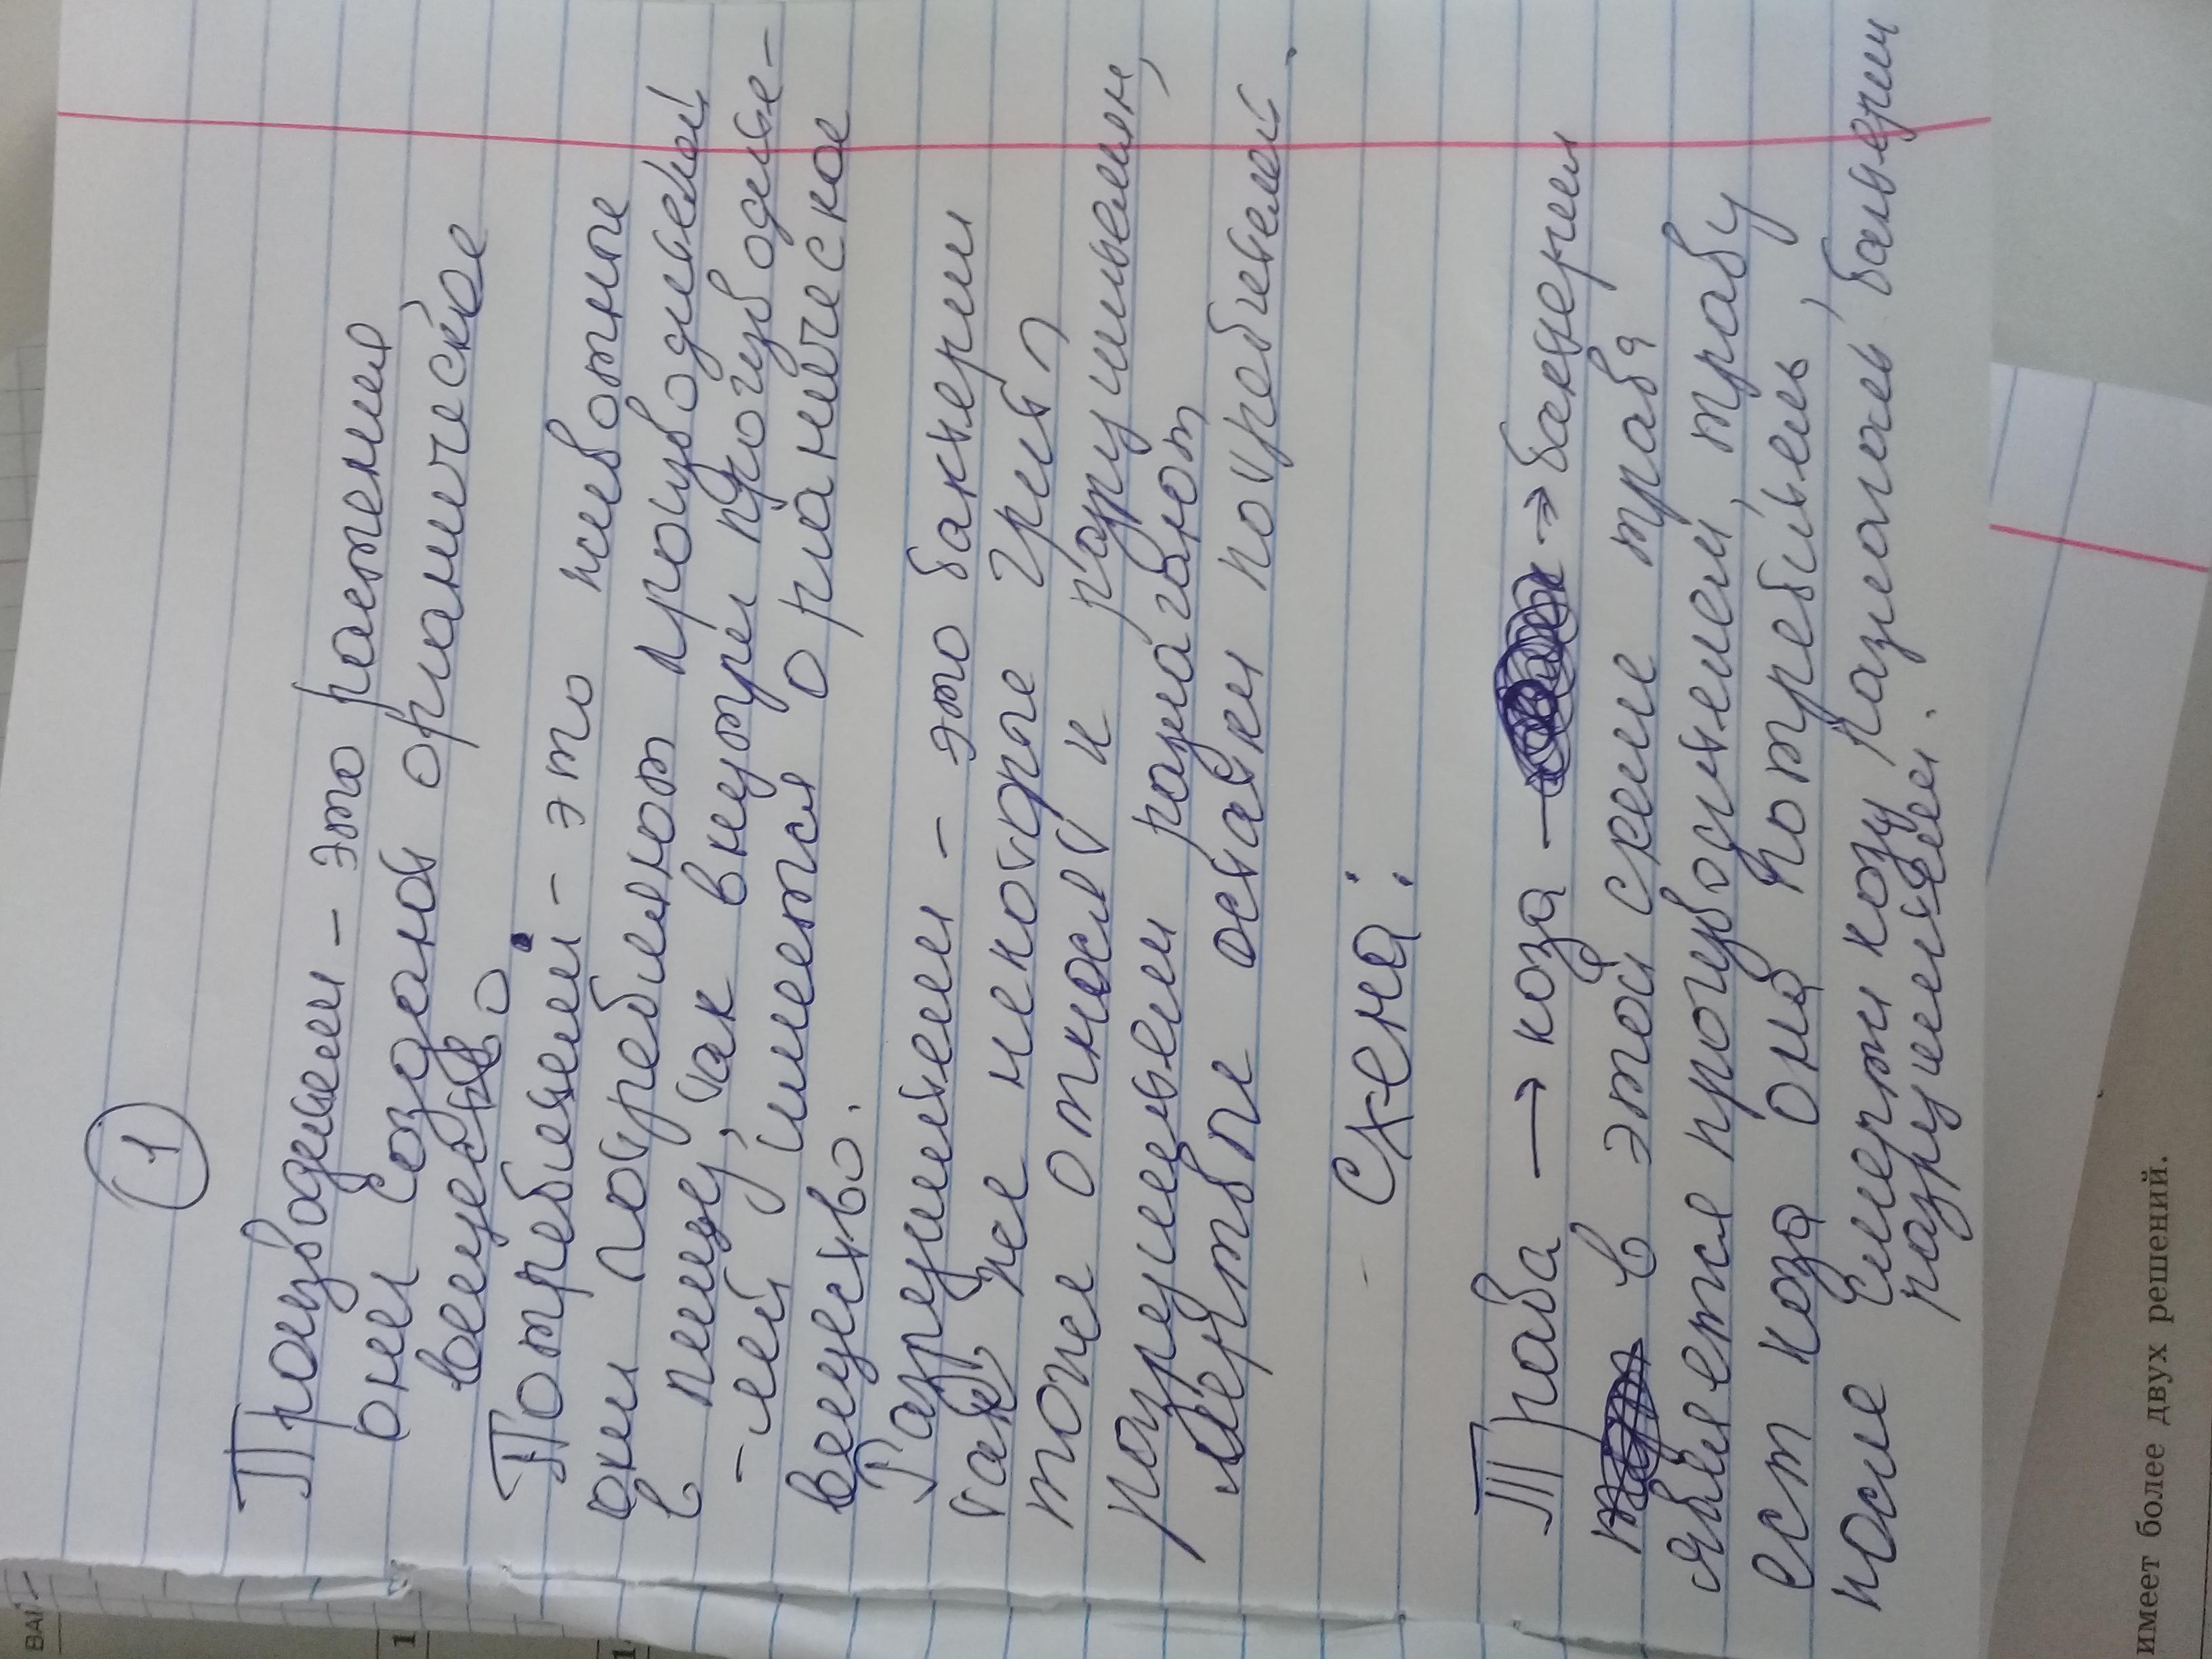 1
Производители - это растения
они создают органическое
вещество
Потребители - это животные
они потребляют производителей
в пищу, так внутри производите-
-лей имеется органическое
вещество.
Разрушители - это бактерии
так же некоторые грибы
тоже относят к разрушителям,
разрушители разлагают
мёртвые остатки потребителей.
Схема:
Трава → коза → бактерии
в этой схеме трава
является производителем, траву
ест коза она потребитель,
после смерти козу разлагают бактерии
разрушители.
ВАР
1
1
имеет более двух решений.